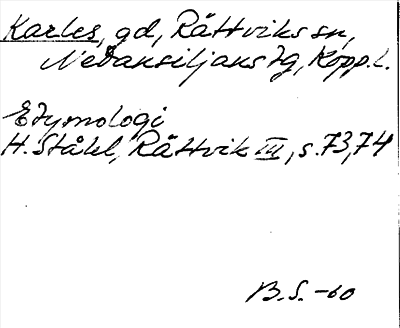 Karles, gd, Rättviks sn,
Nedansiljans tg, Kopp. l.
Etymologi
H. Ståhl, Rättvik III, s. 73, 74
B. S. -60